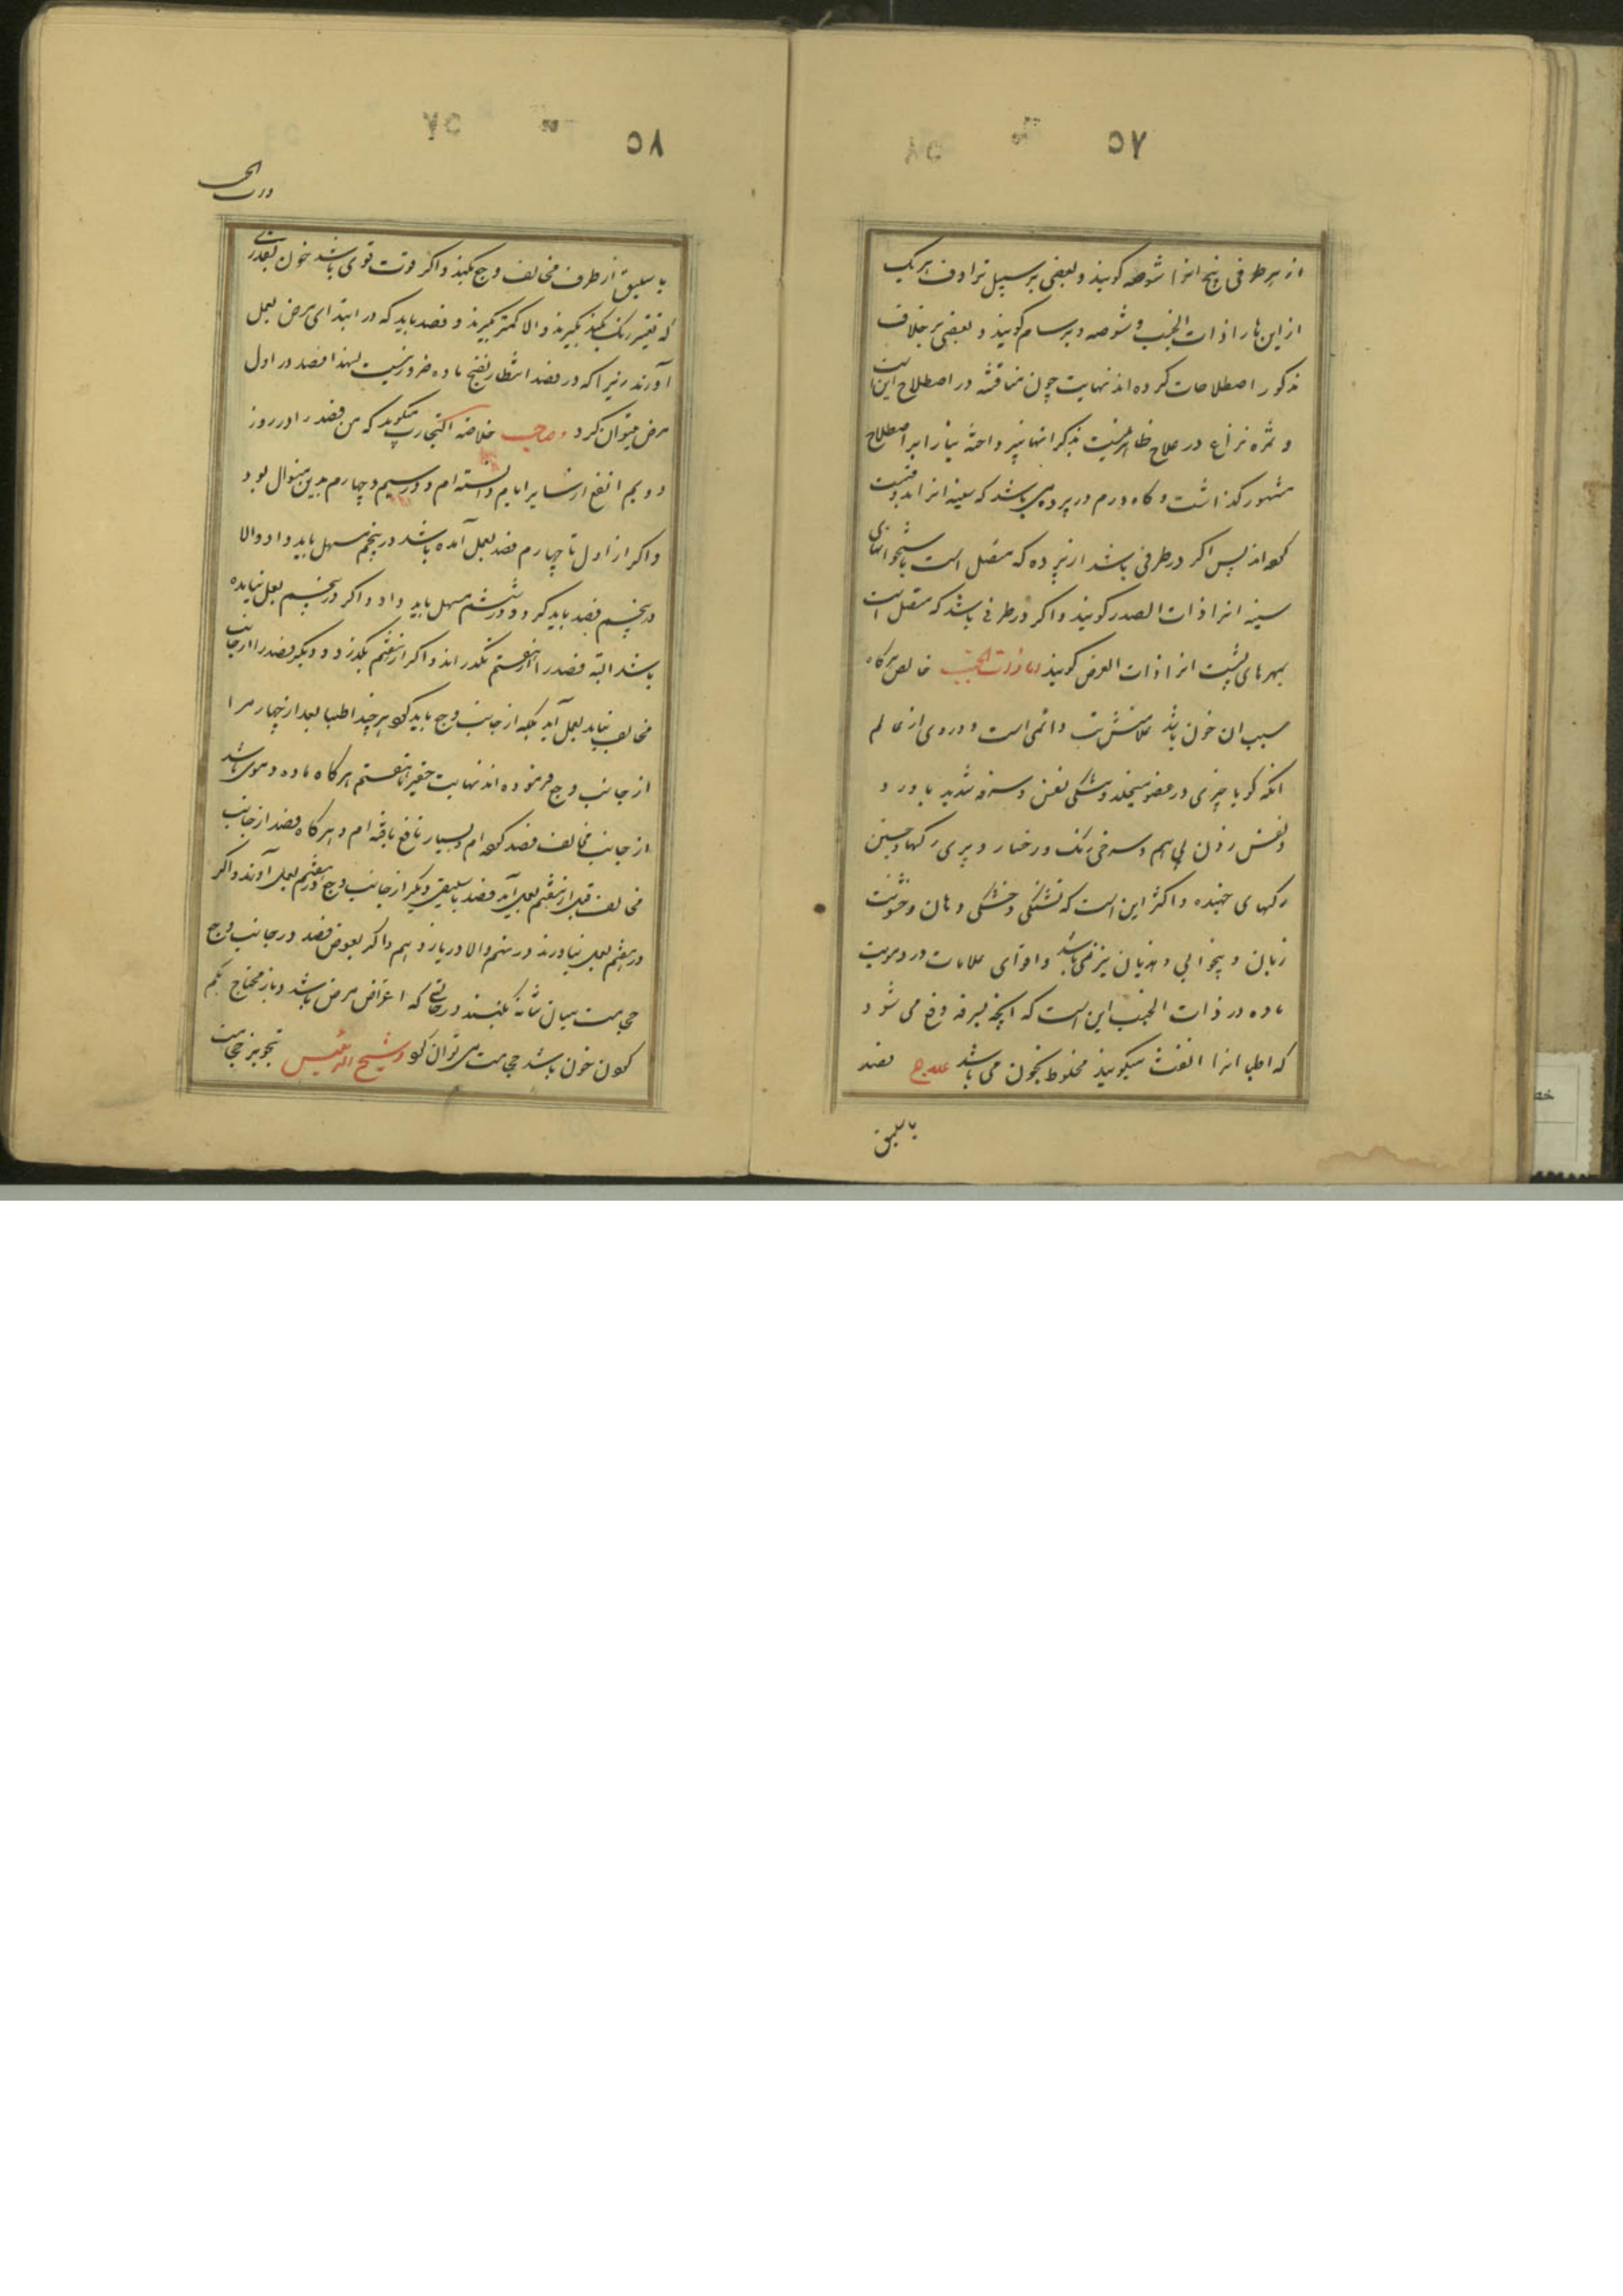 ۵۷
از هر طرفی پنج انرا شوصه کویند و بعضی بر سبیل ترادف هر یک
از این ها را ذات الجنب و شوصه و برسام کویند و بعضی بر خلاف
مذکور اصطلاحات کرده اند نهایت چون مناقشه در اصطلاح این است
و ثمره نزاع در علاج ظاهر نیست بذکر انها نپرداخته بنا را بر اصطلاح
مشهور کذاشت و کاه ورم در پرده می باشد که سینه انرا بدو قسمت
کرده اند پس اکر در طرفی باشد از پرده که متصل است باستخوانهای
سینه انرا ذات الصدر کویند و اکر در طرفی باشد که متصل است
بمهرهای پشت انرا ذات العرض کویند اما ذات الجنب خالص هرکاه
سبب ان خون باشد علامتش تب دائمی است و دردی از عالم
انکه کویا چیزی در عضو میخلد و تنکی نفس و سرفه شدید با درد
و نفس زدن پی هم و سرخی رنک و رخسار و پری رکها و جستن
رکهای جهنده و اکثر این است که تشنکی و خشکی دهان و خشونت
زبان و بیخوابی و هذیان نیز می باشد و اقوای علامات در دمویت
ماده در ذات الجنب این است که انچه بسرفه دفع می شود
که اطبا انرا النفث میکویند مخلوط بخون می باشد علاج فصد
باسلیق
۵۸
باسلیق از طرف مخالف وجع بکنند و اکر قوت قوی باشد خون بقدری
که تغییر رنک بکند بکیرند والا کمتر بکیرند و فصد باید که در ابتدای مرض بعمل
آورند زیرا که در فصد انتظار نضج ماده ضرور نیست لهذا فصد در اول
مرض میتوان کرد و صاحب خلاصه التجارب میکوید که من فصد را در روز
دویم انفع از سایر ایام دانسته ام و در سیم و چهارم بدین منوال بود
و اکر از اول تا چهارم فصد بعمل آمده باشد در پنجم مسهل باید داد والا
در پنجم فصد باید کرد و در ششم مسهل باید داد و اکر در پنجم بعمل نیامده
باشد البته فصد را از هفتم نکذرانند و اکر از هفتم بکذرد دیکر فصد را از جانب
مخالف نباید بعمل آید بلکه از جانب وجع باید کرد هر چند اطبا بعد از چهار مرا
از جانب وجع فرموده اند نهایت حقیر تا هفتم هرکاه ماده دموی باشد
از جانب مخالف فصد کرده ام و بسیار نافع یافته ام و هرکاه فصد از جانب
مخالف قبل از هفتم بعمل آید فصد باسلیق دیکر از جانب وجع در هفتم بعمل آورند و اکر
در هفتم بعمل نیاورند در نهم والا در یازدهم و اکر بعوض فصد در جانب وجع
حجامت میان شانه بکنند در حالتی که اعراض مرض باشد و باز محتاج بکم
کردن خون باشد حجامت می توان کرد و شیخ الرئیس تجویز حجامت